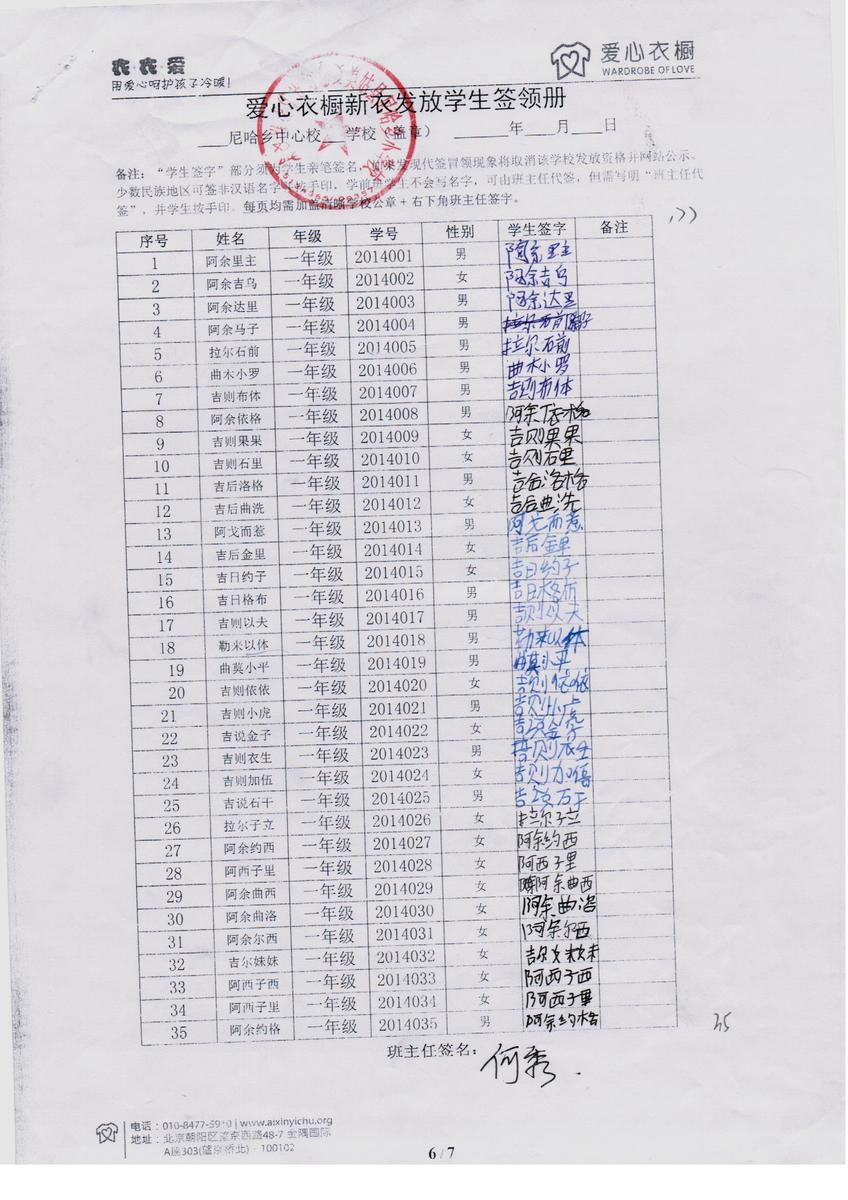 衣·衣·爱
用爱心呵护孩子冷暖!
爱心衣橱
WARDROBE OF LOVE
爱心衣橱新衣发放学生签领册
尼哈乡中心校 学校（盖章） 年 月 日
备注：“学生签字”部分须为学生亲笔签名，如果发现代签冒领现象将取消该学校发放资格并网站公示、
少数民族地区可签非汉语名字并按手印，学前班学生不会写名字，可由班主任代签，但需写明“班主任代
签”，并学生按手印。每页均需加盖清晰学校公章+右下角班主任签字。
序号 姓名 年级 学号 性别 学生签字 备注
1 阿余里主 一年级 2014001 男 阿余里主
2 阿余吉乌 一年级 2014002 女 阿余吉乌
3 阿余达里 一年级 2014003 男 阿余达里
4 阿余马子 一年级 2014004 男
5 拉尔石前 一年级 2014005 男 拉尔石前
6 曲木小罗 一年级 2014006 男 曲木小罗
7 吉则布体 一年级 2014007 男 吉则布体
8 阿余依格 一年级 2014008 男 阿余依格
9 吉则果果 一年级 2014009 女 吉则果果
10 吉则石里 一年级 2014010 女 吉则石里
11 吉后洛格 一年级 2014011 男 吉后洛格
12 吉后曲洗 一年级 2014012 女 吉后曲洗
13 阿戈而惹 一年级 2014013 男 阿戈而惹
14 吉后金里 一年级 2014014 女 吉后金里
15 吉日约子 一年级 2014015 女 吉日约子
16 吉日格布 一年级 2014016 男 吉日格布
17 吉则以夫 一年级 2014017 男 吉则以夫
18 勒来以体 一年级 2014018 男 勒来以体
19 曲莫小平 一年级 2014019 男 曲莫小平
20 吉则依依 一年级 2014020 女 吉则依依
21 吉则小虎 一年级 2014021 男 吉则小虎
22 吉说金子 一年级 2014022 女 吉说金子
23 吉则衣生 一年级 2014023 男 吉则衣生
24 吉则加伍 一年级 2014024 女 吉则加伍
25 吉说石干 一年级 2014025 男 吉说石干
26 拉尔子立 一年级 2014026 女 拉尔子立
27 阿余约西 一年级 2014027 女 阿余约西
28 阿西子里 一年级 2014028 女 阿西子里
29 阿余曲西 一年级 2014029 女 阿余曲西
30 阿余曲洛 一年级 2014030 女 阿余曲洛
31 阿余尔西 一年级 2014031 女 阿余尔西
32 吉尔妹妹 一年级 2014032 女 吉尔妹妹
33 阿西子西 一年级 2014033 女 阿西子西
34 阿西子里 一年级 2014034 女 阿西子里
35 阿余约格 一年级 2014035 男 阿余约格
35
班主任签名： 何秀
电话：010-8477-5910 | www.aixinyichu.org
地址：北京朝阳区望京西路48-7 金隅国际
A座303(望京桥北) · 100102
6 / 7